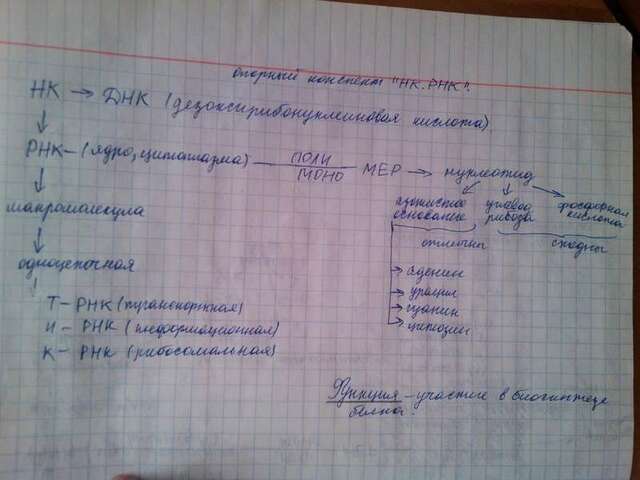 опорный конспект "НК. РНК".
НК → ДНК (дезоксирибонуклеиновая кислота).
РНК – (ядро, цитоплазма) ПОЛИ МЕР → нуклеотид
МОНО
макромолекула
азотистое основание
углевод рибоза
фосфорная кислота
отличны
сходны
одноцепочная
→ аденин
→ урацил
→ гуанин
→ цитозин
Т – РНК (транспортная)
И – РНК (информационная)
К – РНК (рибосомальная)
Функция – участие в биосинтезе
белка.